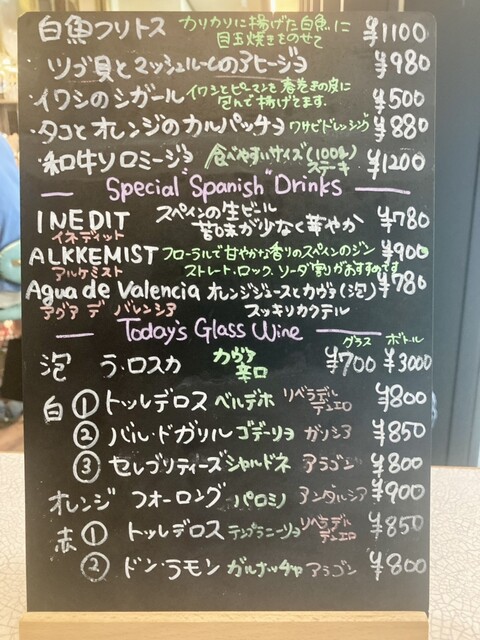 白魚フリトス カリカリに揚げた白魚に ¥1100
目玉焼きをのせて
・ツブ貝とマッシュルームのアヒージョ ¥980
・イワシのシガール イワシとピーマンを春巻きの皮に ¥500
包んで揚げてます.
・タコとオレンジのカルパッチョ ワサビドレッシング ¥880
・和牛ソロミージョ 食べやすいサイズ(100g) ¥1200
ステーキ
Special "Spanish" Drinks
INEDIT スペインの生ビール ¥780
イネディット 苦味が少なく華やか
ALKKEMIST フローラルで甘やかな香りのスペインのジン ¥900
アルケミスト ストレート、ロック、ソーダ割りがおすすめです
Agua de Valencia オレンジジュースとカヴァ(泡) ¥780
アグア デ バレンシア スッキリカクテル
Today's Glass Wine
グラス ボトル
泡 ラ・ロスカ カヴァ ¥700 ¥3000
辛口
白 ① トッレデロス ベルデホ リベラデル ¥800
デュエロ
② バル・ド・ガリル ゴデーリョ ガリシア ¥850
③ セレブリティーズ シャルドネ アラゴン ¥800
オレンジ フォーロング パロミノ アンダルシア ¥900
赤 ① トッレデロス テンプラニーリョ リベラデル ¥850
デュエロ
② ドン・ラモン ガルナッチャ アラゴン ¥800